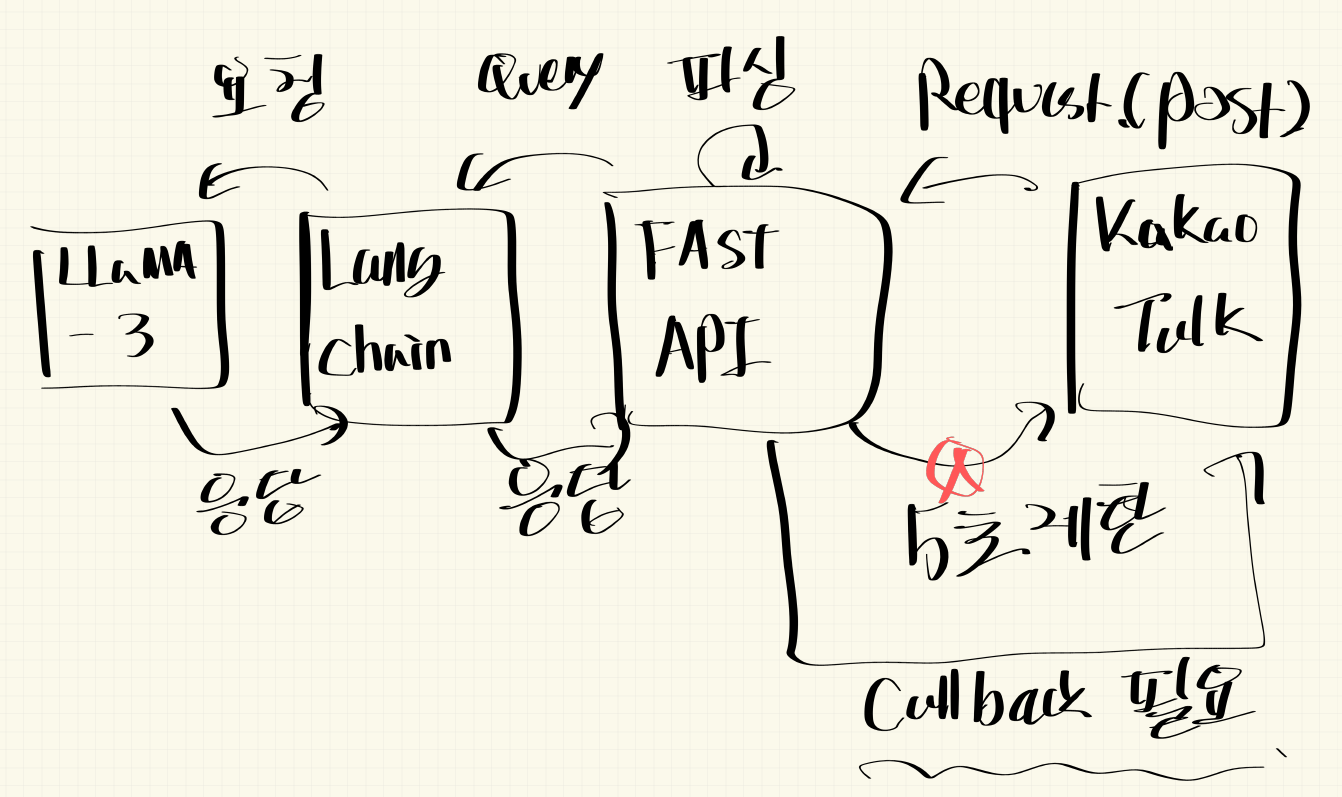 요청
Query
파싱
Request.(post)
LLaMA
- 3
Lang
Chain
FAST
API
Kakao
Talk
응답
응답
5초 제한
Callback 필요